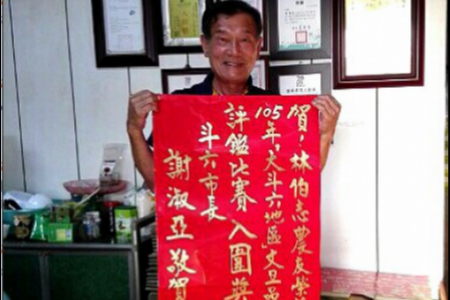 賀！林伯志農友榮
105年「大斗六地區」文旦品
評鑑比賽入圍獎
斗六市長
謝淑亞敬賀